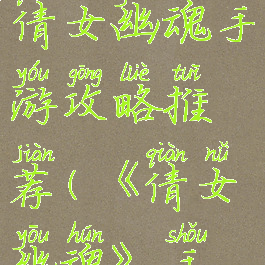 倩女幽魂手
yóu gōng lüè tuī
游攻略推
jiàn qiàn nǚ
荐(《倩女
yōu hún shǒu
幽魂》手